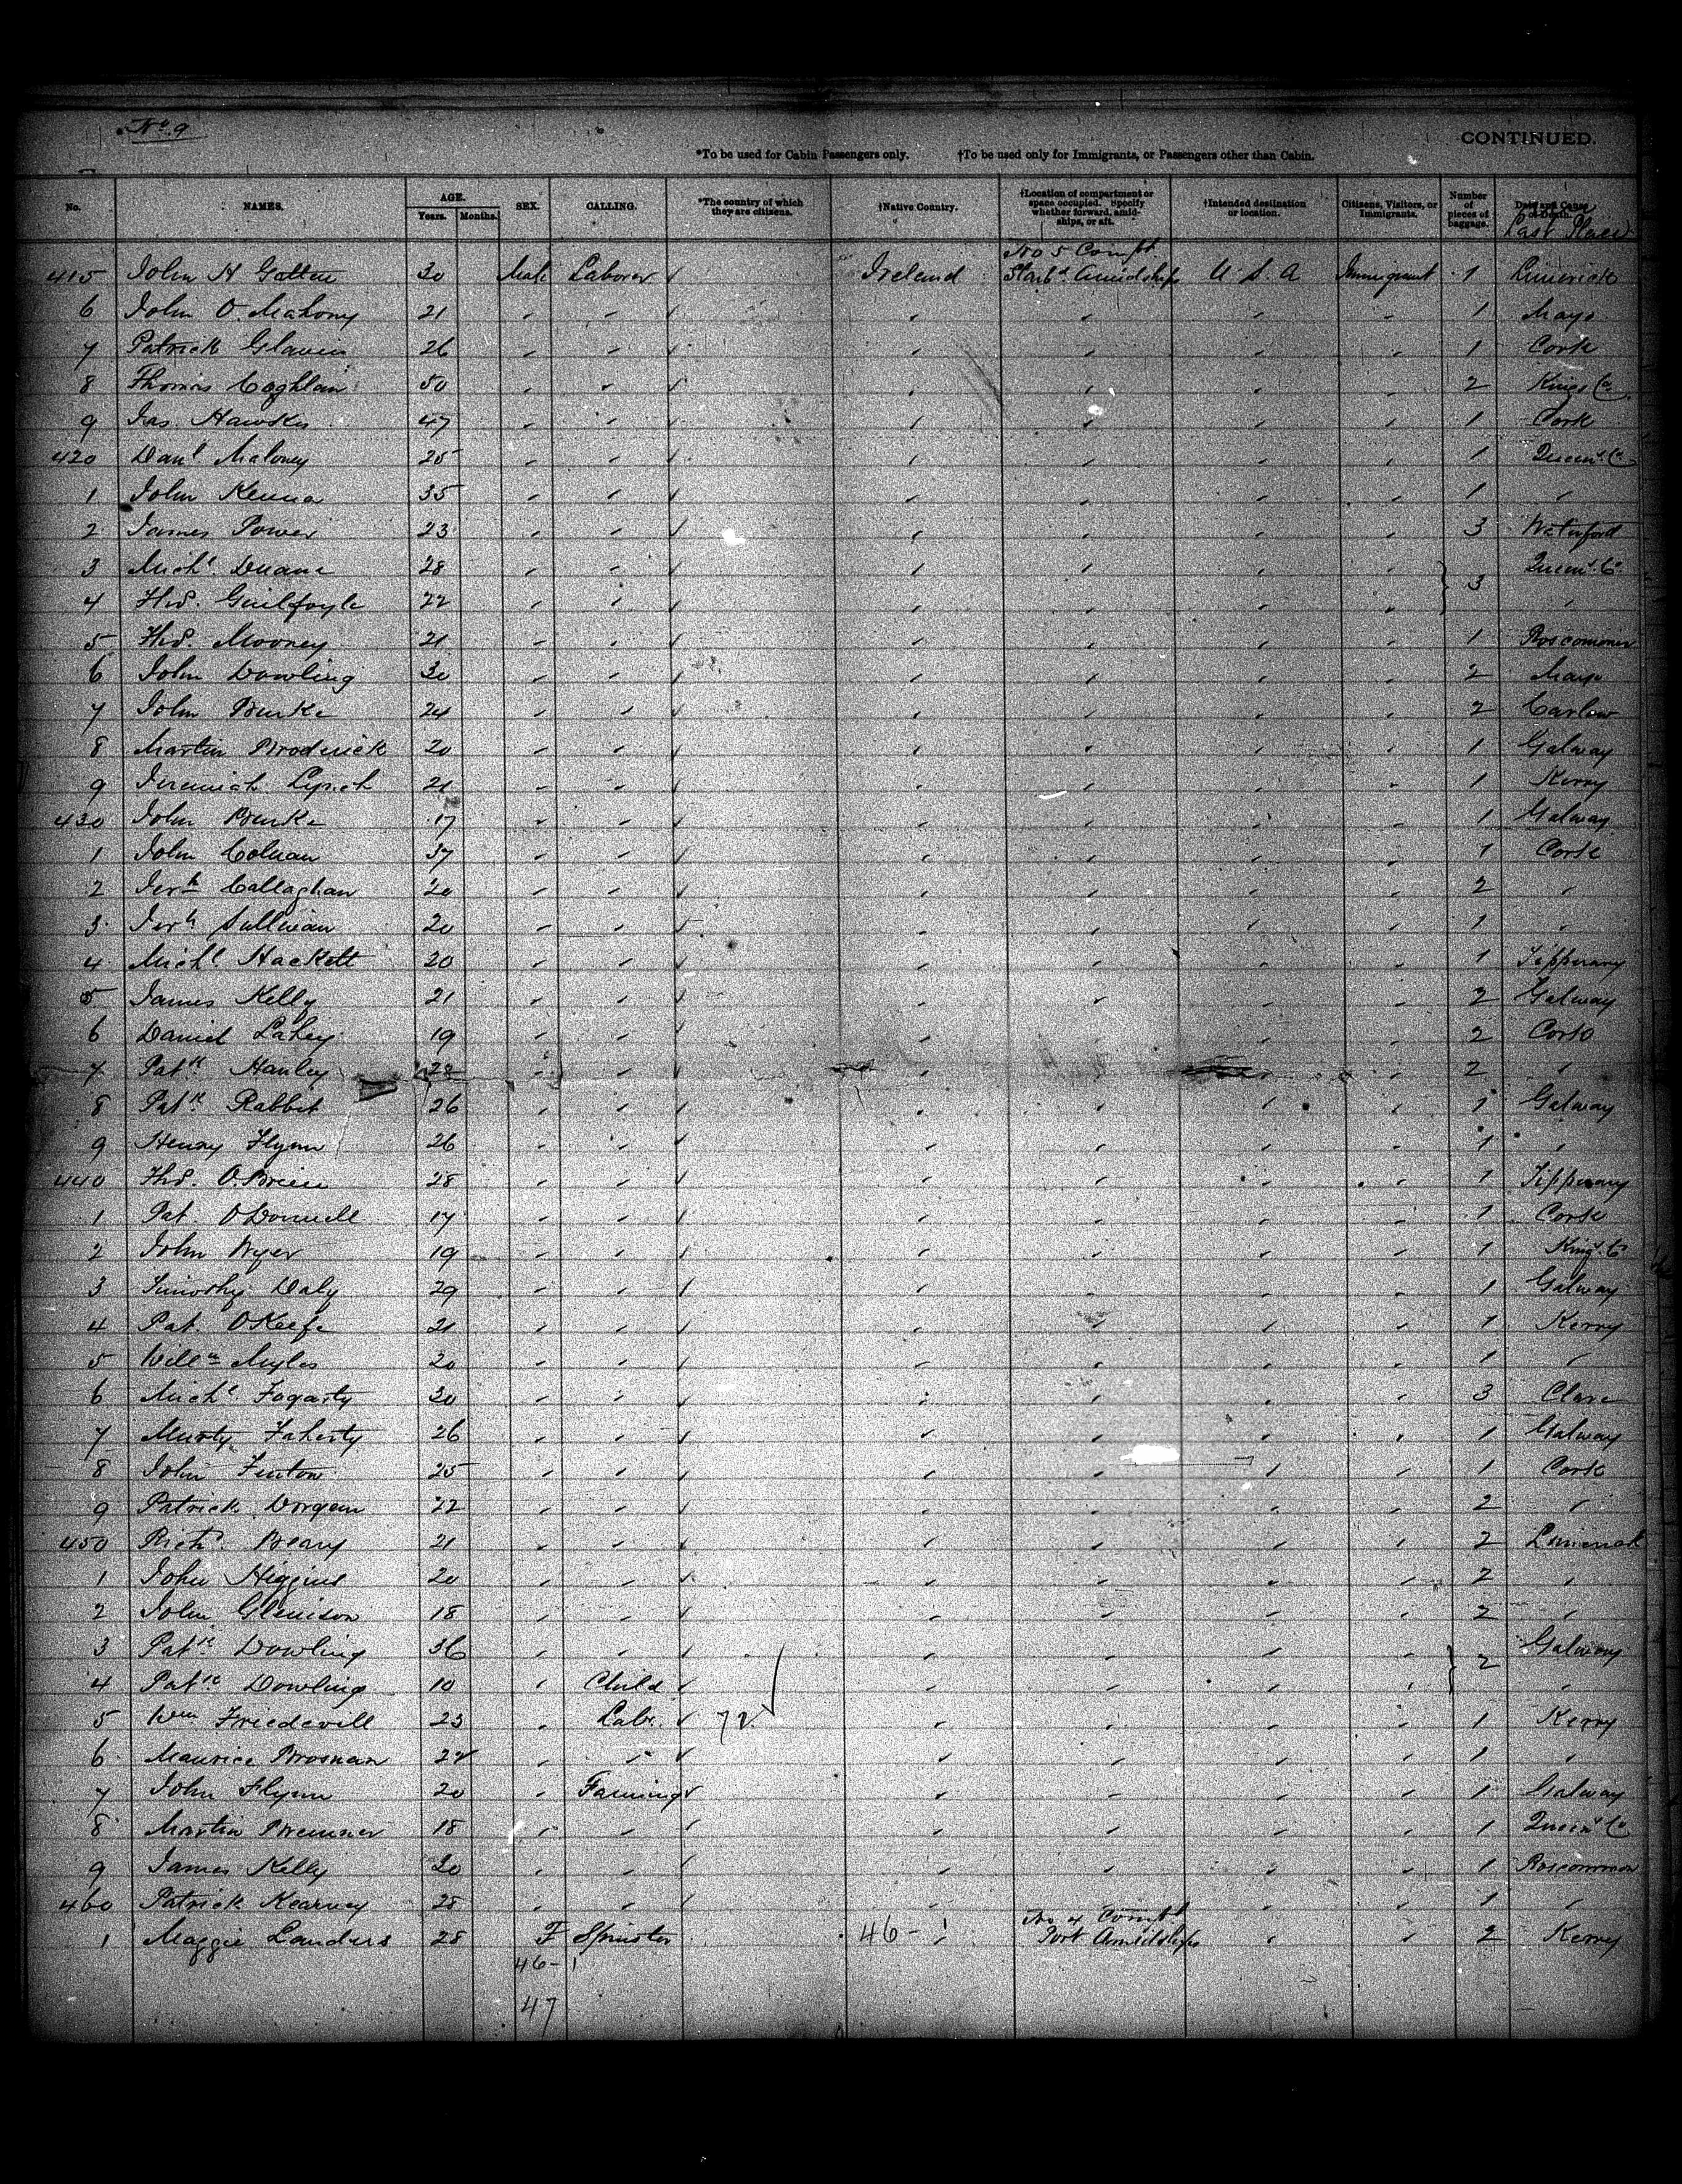 No. 9
CONTINUED.
*To be used for Cabin Passengers only. †To be used only for Immigrants, or Passengers other than Cabin.
No. NAMES. AGE. Years. Months. SEX. CALLING. *The country of which they are citizens. †Native Country. †Location of compartment or space occupied. Specify whether forward, amidships, or aft. †Intended destination or location. Citizens, Visitors, or Immigrants. Number of pieces of baggage. Date and Cause of Death.
Last Place
No 5 Compt.
415 John H 30 Male Laborer ✓ Ireland Starbd. Amidships U. S. A Immigrant 1 Limerick
6 John O. Mahony 21 " " ✓ " " " " 1 Mayo
7 Patrick Glavin 26 " " ✓ " " " " 1 Cork
8 Thomas Coghlan 50 " " ✓ " " " " 2 Kings Co
9 Jas. Hawkes 47 " " ✓ " " " " 1 Cork
420 Danl. Maloney 25 " " ✓ " " " " 1 Queen's Co
1 John Kenna 35 " " ✓ " " " " 1 "
2 James Power 23 " " ✓ " " " " 3 Waterford
3 Michl. Duane 28 " " ✓ " " " " } 3 Queen's Co.
4 Thos. Guilfoyle 22 " " ✓ " " " " "
5 Thos. Mooney 21 " " ✓ " " " " 1 Roscommon
6 John Dowling 30 " " ✓ " " " " 2 Mayo
7 John Burke 24 " " ✓ " " " " 2 Carlow
8 Martin Broderick 20 " " ✓ " " " " 1 Galway
9 Jeremiah Lynch 21 " " ✓ " " " " 1 Kerry
430 John Burke 17 " " ✓ " " " " 1 Galway
1 John Colman 37 " " ✓ " " " " 1 Cork
2 Jerh Callaghan 20 " " ✓ " " " " 2 "
3 Jerh Sullivan 20 " " ✓ " " " " 1 "
4 Michl. Hackett 20 " " ✓ " " " " 1 Tipperary
5 James Kelly 21 " " ✓ " " " " 2 Galway
6 Daniel Lahey 19 " " ✓ " " " " 2 Cork
7 Patk. Hanley 22 " " ✓ " " " " 2 "
8 Patk. Rabbit 26 " " ✓ " " " " 1 Galway
9 Henry Flynn 26 " " ✓ " " " " 1 "
440 Thos. O.Brien 28 " " ✓ " " " " 1 Tipperary
1 Pat. O'Donnell 17 " " ✓ " " " " 1 Cork
2 John Wyer 19 " " ✓ " " " " 1 King's Co
3 Timothy Daly 29 " " ✓ " " " " 1 Galway
4 Pat. O'Keefe 21 " " ✓ " " " " 1 Kerry
5 Willm Myles 20 " " ✓ " " " " 1 "
6 Michl Fogarty 30 " " ✓ " " " " 3 Clare
7 Murty Faherty 26 " " ✓ " " " " 1 Galway
8 John Finton 25 " " ✓ " " " " 1 Cork
9 Patrick Dorgan 22 " " ✓ " " " " 2 "
450 Richd. Beary 21 " " ✓ " " " " 2 Limerick
1 John Higgins 20 " " ✓ " " " " 2 "
2 John Glenison 18 " " ✓ " " " " 2 "
3 Patk. Dowling 36 " " ✓ " " " " } 2 Galway
4 Patk. Dowling 10 " Child ✓ " " " " "
5 Wm 23 " Labr. ✓ 72 ✓ " " " " 1 Kerry
6 Maurice Brosnan 22 " " ✓ " " " " 1 "
7 John Flynn 20 " Farming ✓ " " " " 1 Galway
8 Martin Brenner 18 " " ✓ " " " " 1 Queen's Co
9 James Kelly 20 " " ✓ " " " " 1 Roscommon
460 Patrick Kearney 28 " " ✓ " " " " 1 "
No 4 Compt
1 Maggie Landers 28 F Spinster 46 - 1 Port Amidships " " 2 Kerry
46 - 1
47